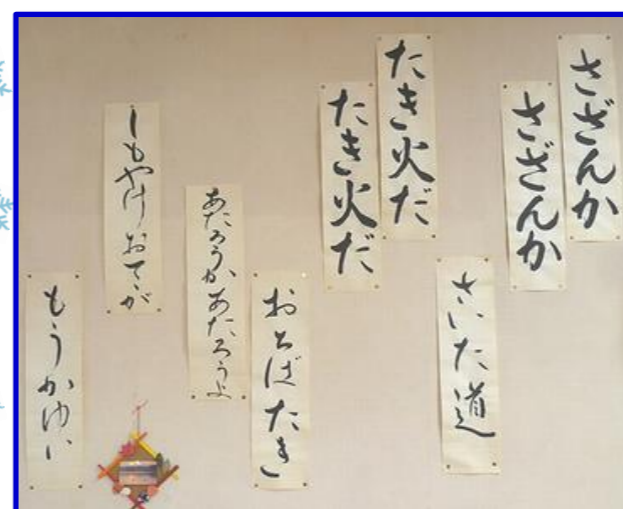 さざんか
さざんか
さいた道
たき火だ
たき火だ
おちばたき
あたろうかあたろうよ
しもやけおてゝが
もうかゆい